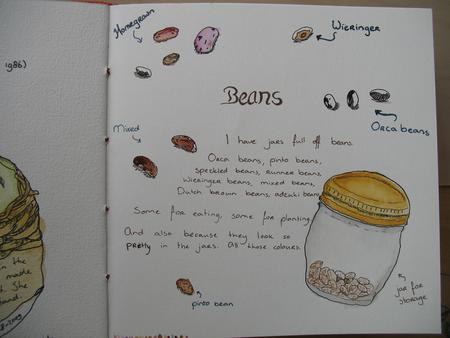 1986)
Homegrown
Wieringer
Beans
Orca beans
Mixed
I have jars full off beans.
Orca beans, pinto beans,
speckled beans, runner beans
Wieringer beans, mixed beans,
Dutch brown beans, adzuki beans
Some for eating, some for planting
And also because they look so
pretty in the jars. All those colours.
jar for
storage
pinto bean
in the
made
She
hand.